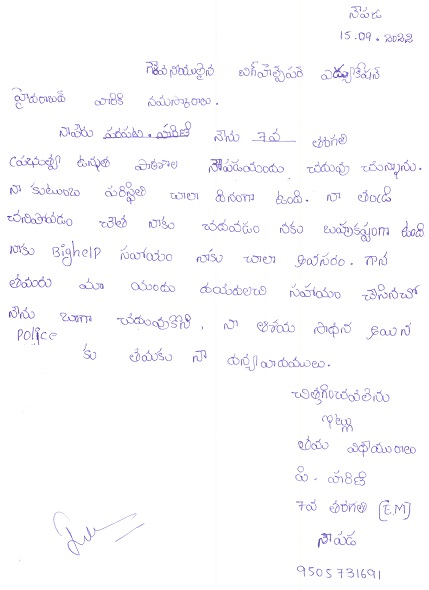 నౌపడ
15.09.2022
గౌరవనీయులైన బిగ్‌హెల్ప్‌ఫర్ ఎడ్యుకేషన్
హైదరాబాద్ వారికి నమస్కారాలు.
నాపేరు హారిణి నేను 7వ తరగతి
ప్రభుత్వ ఉన్నత పాఠశాల నౌపడయందు చదువు చున్నాను.
నా కుటుంబ పరిస్థితి చాలా దీనంగా ఉంది. నా తండ్రి
చనిపోవడం చేత నాకు చదవడం నకు బహుకష్టంగా ఉంది
నాకు Bighelp సహాయం నాకు చాలా అవసరం. గాన
తమరు మా యందు దయదలచి సహాయం చేసినచో
నేను బాగా చదువుకొని, నా ఆశయ సాధన అయిన
Police
కు తమకు నా ధన్యవాదములు.
చిత్తగించవలెను
ఇట్లు
తమ విధేయురాలు
పి. హారిణి
7వ తరగతి [E.M]
నౌపడ
9505731691